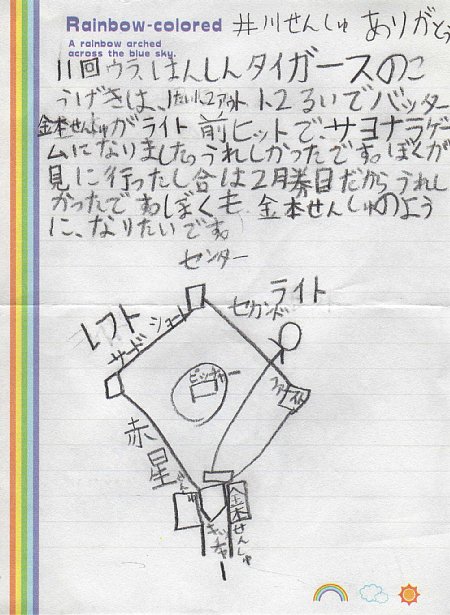 Rainbow-colored
A rainbow arched
across the blue sky.
井川せんしゅ ありがとう
11回ウラ はんしんタイガースのこ
うげきは、1たい1、2アウト 1、2るいでバッター
金本せんしゅがライト前ヒットで、サヨナラゲー
ムになりました。うれしかったです。ぼくが
見に行ったし合は2月券目だから、うれし
かったです。ぼくも 金本せんしゅのよう
に、なりたいです。
センター
レフト
ショート
セカンド
ライト
サード
ピッチャー
ファースト
赤星
せんしゅ
金本せんしゅ
キャッチャー